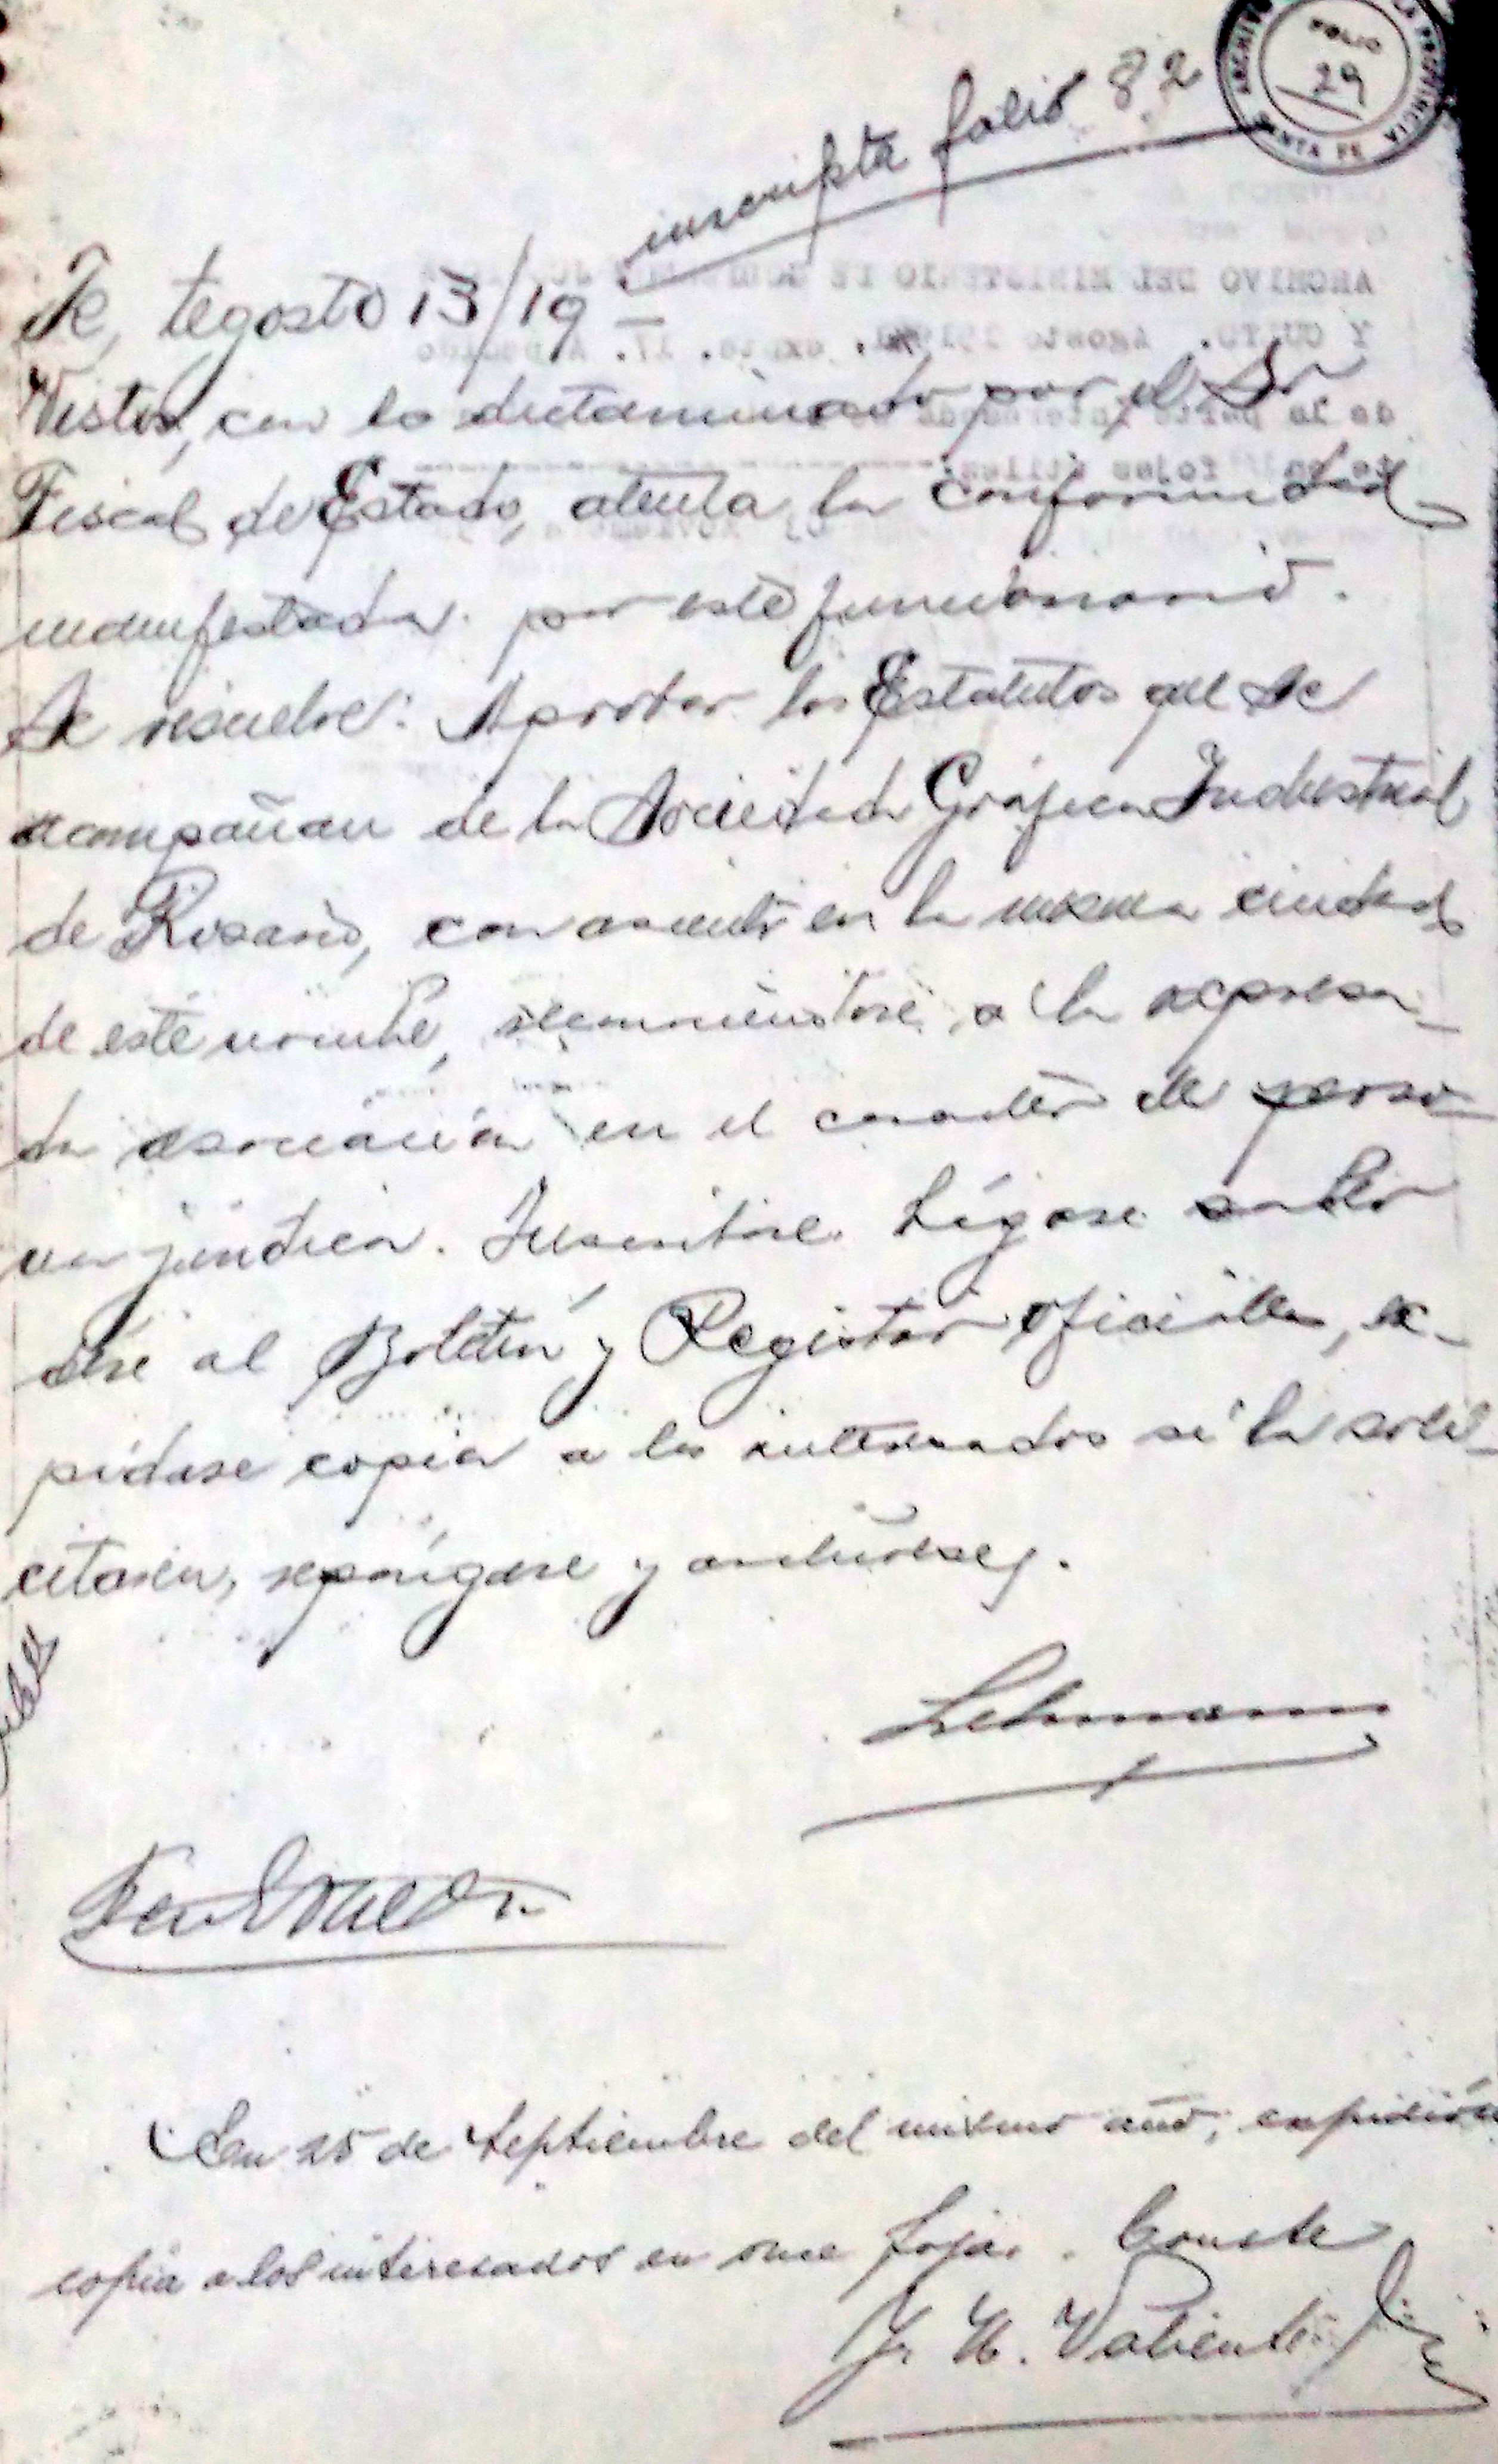 FOLIO
29
inscripta folio 82
Fe, Agosto 13/19
Vistos, con lo dictaminado por el Sr
Fiscal de Estado, atenta la conformidad
manifestada por este funcionario.
Se resuelve: Aprobar los Estatutos que se
acompañan de la Sociedad Gráfica Industrial
de Rosario, con asiento en la misma ciudad
de este nombre, reconociéndose a la expresa-
da asociación en el carácter de perso-
na jurídica. Inscríbase. Hágase saber
dése al Boletín y Registro oficiales, ex-
pídase copia a los interesados si la soli-
citasen, repóngase y archívese.
Lehmann
En 25 de Septiembre del mismo año, expidióse
copia a los interesados en once fojas. Conste
J. M. Valiente
ARCHIVO DEL MINISTERIO DE
Y CULTO. Agosto
de la parte
fojas útiles